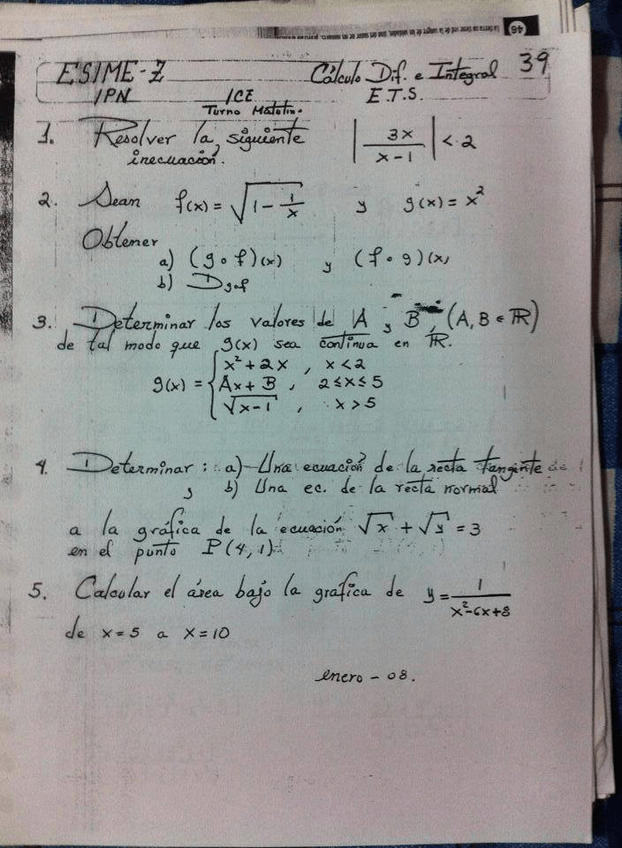 46
ESIME-Z Cálculo Dif. e Integral 39
IPN ICE E.T.S.
Turno Matutino.
1. Resolver la siguiente | 3x / x-1 | < 2
inecuación.
2. Sean f(x) = √(1 - 1/x) y g(x) = x²
Obtener
a) (g∘f)(x) y (f∘g)(x)
b) D g∘f
3. Determinar los valores de A y B, (A, B ∈ ℝ)
de tal modo que g(x) sea continua en ℝ.
x² + 2x , x < 2
g(x) = { Ax + B , 2 ≤ x ≤ 5
√(x-1) , x > 5
4. Determinar : a) Una ecuación de la recta tangente
y b) Una ec. de la recta normal
a la gráfica de la ecuación √x + √y = 3
en el punto P(4,1)
5. Calcular el área bajo la gráfica de y = 1 / x²-6x+8
de x = 5 a x = 10
enero - 08.